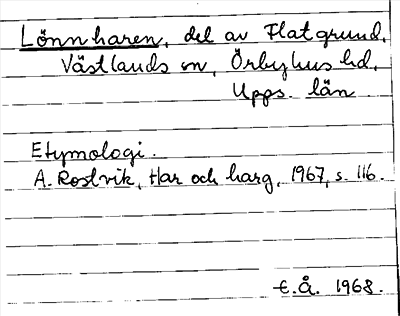 Lönnharen, del av Flatgrund,
Västlands sn, Örbyhus hd,
Upps. län
Etymologi.
A. Rostvik, Har och harg, 1967, s. 116.
E.Å. 1968.